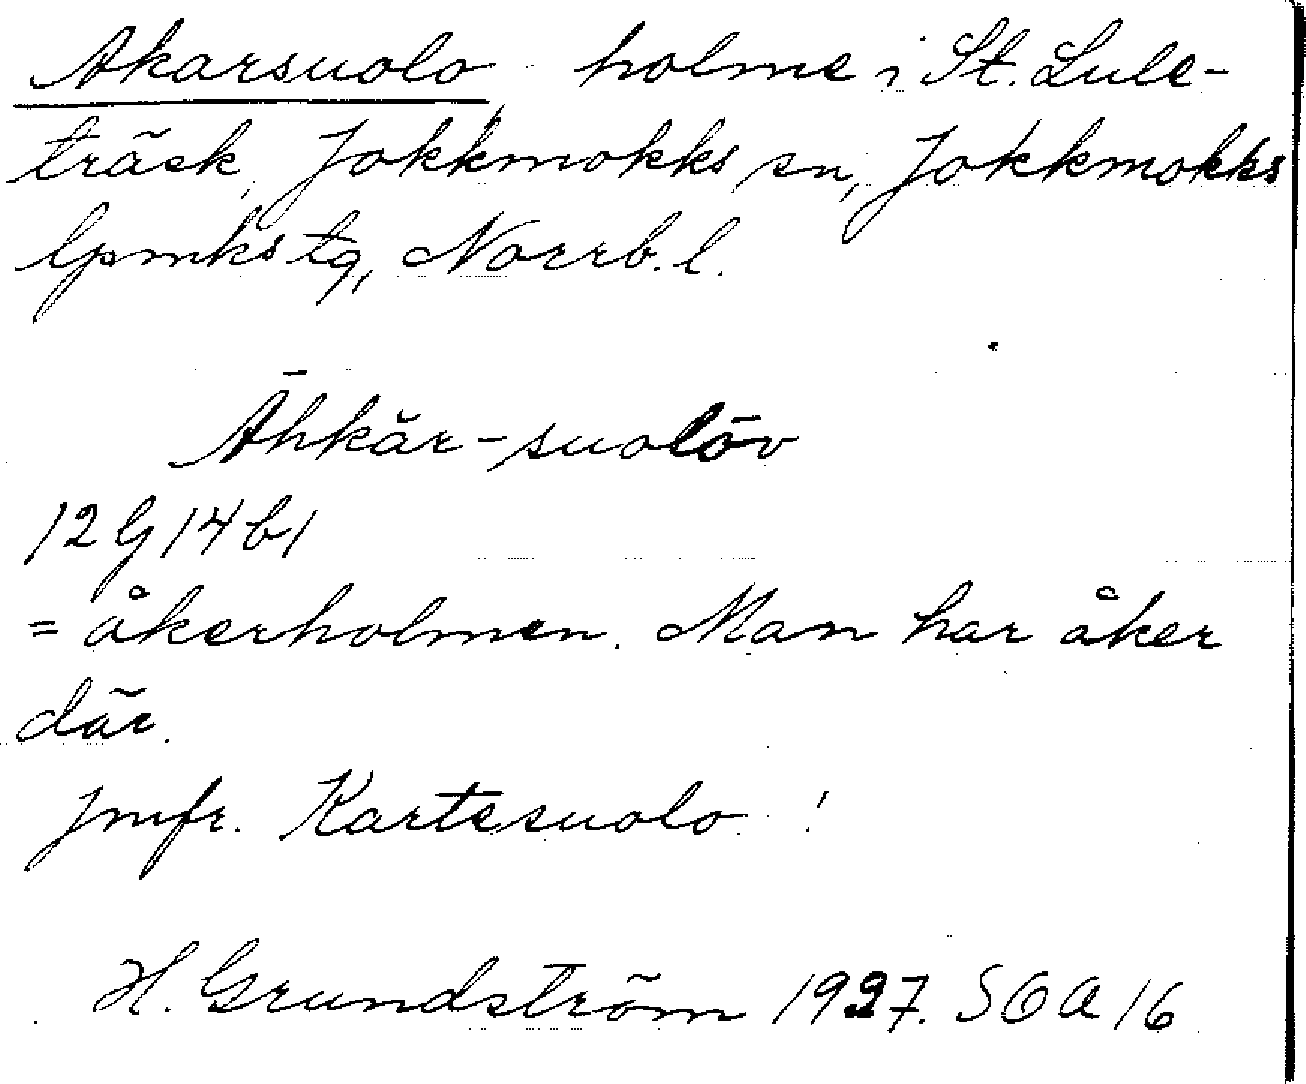 Akarsuolo holme i St. Lule-
träsk, Jokkmokks sn, Jokkmokks
lpmks tg, Norrb. l.
Āhkăr-suolōv
12 G 14 b1
= åkerholmen. Man har åker
där.
Jmfr. Kartesuolo !
H. Grundström 1927. SOA 16